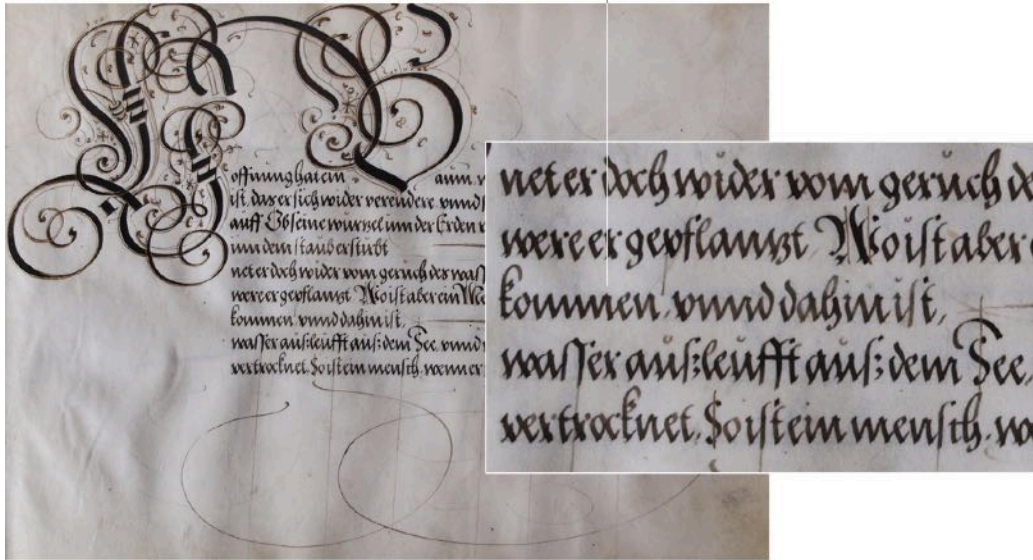 Hoffnung hat ein Baum, v
ist, das er sich wider verendere, vnnd
auff Ob seine wurzel inn der Erden
inn dem staub erstirbt
net er doch wider vom geruch des wass
were er gepflantzt Wo ist aber ein Me
kommen, vnnd dahin ist,
wasser ausz leufft ausz dem See, vnnd
vertrocknet, So ist ein mensch, wenn er
net er doch wider vom geruch de
were er gepflantzt Wo ist aber
kommen, vnnd dahin ist,
wasser ausz leufft ausz dem See,
vertrocknet, So ist ein mensch, we